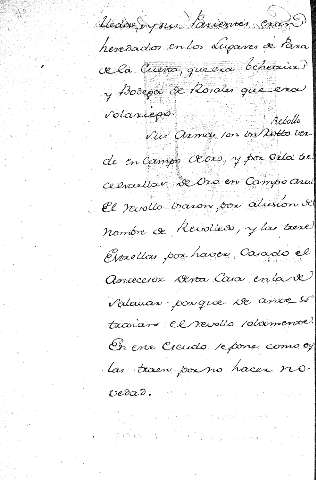 y sus Parientes eran
heredados en los Lugares de Para
de la Cuesta, que era behetria
y Bocega de Rosales que era
solariego.
Rebollo
Sus Armas, son un Rollo ver
de en Campo de oro, y por orla tre
ce estrellas de Oro en Campo azul
El revollo traxon, por alusion del
nombre de Revolledo, y las trece
Estrellas por haver Casado el
Antecesor de esta Casa en la de
Salazar porque de antes se
traian el revollo solamente.
En este Escudo se pone como oy
las traen por no hacer no-
vedad.